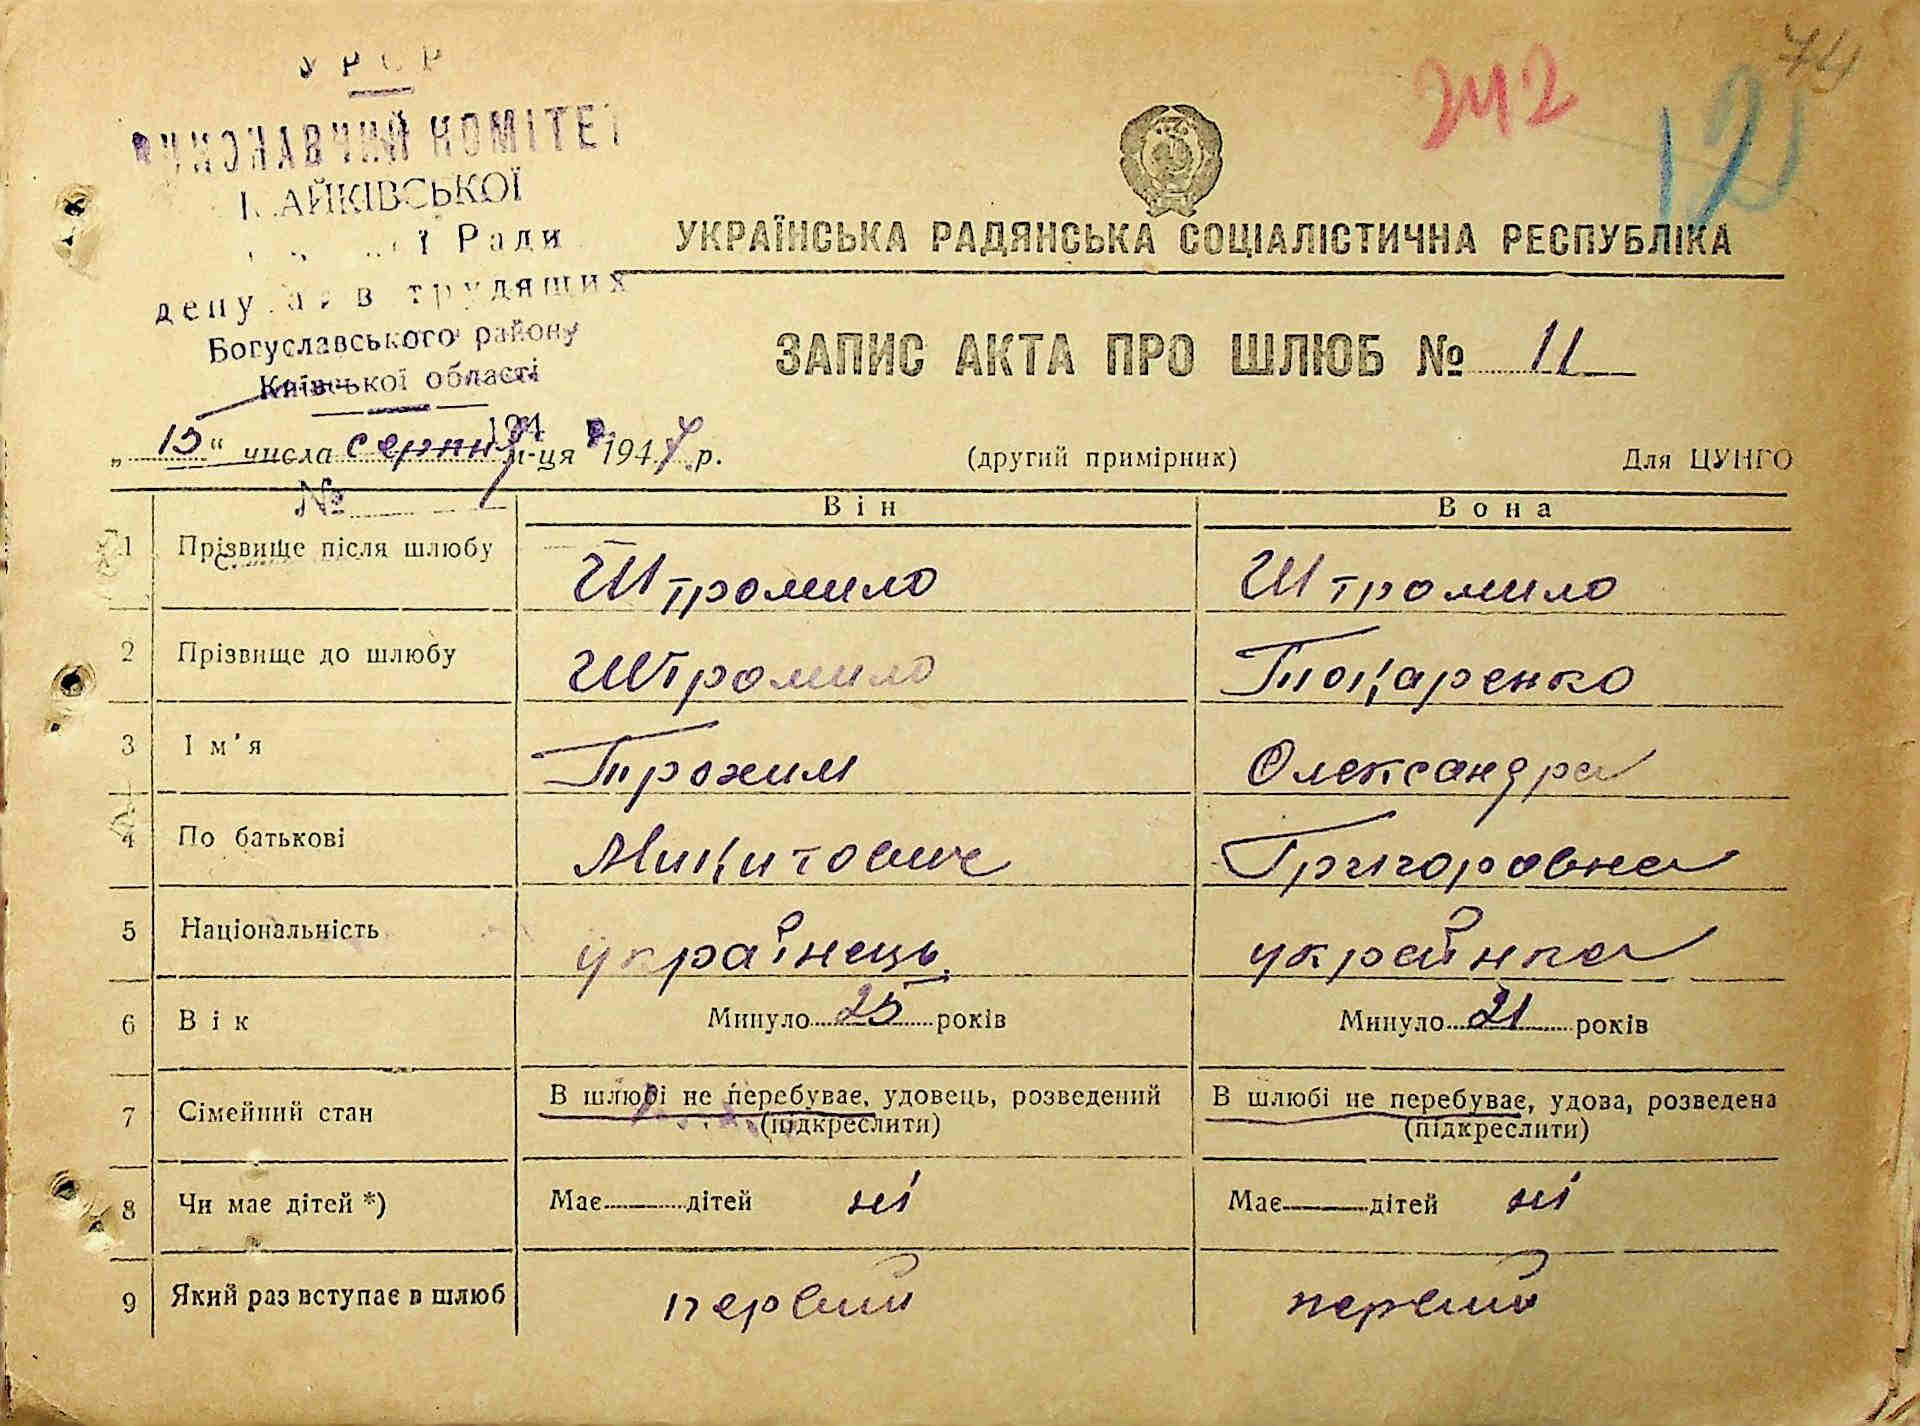 74
242
12
УРСР
ВИКОНАВЧИЙ КОМІТЕТ
АЙКІВСЬКОЇ
ї Ради
депутатів трудящих
Богуславського району
Київської області
194 р
№
УКРАЇНСЬКА РАДЯНСЬКА СОЦІАЛІСТИЧНА РЕСПУБЛІКА
ЗАПИС АКТА ПРО ШЛЮБ № 11
„15“ числа серпня м-ця 1947 р.
(другий примірник)
Для ЦУНГО
Він
Вона
1 Прізвище після шлюбу Штромило Штромило
2 Прізвище до шлюбу Штромило Токаренко
3 Ім'я Трохим Олександра
4 По батькові Микитович Григоровна
5 Національність українець українка
6 Вік Минуло 25 років Минуло 21 років
7 Сімейний стан В шлюбі не перебуває, удовець, розведений В шлюбі не перебуває, удова, розведена
(підкреслити) (підкреслити)
8 Чи має дітей *) Має дітей ні Має дітей ні
9 Який раз вступає в шлюб первий первий